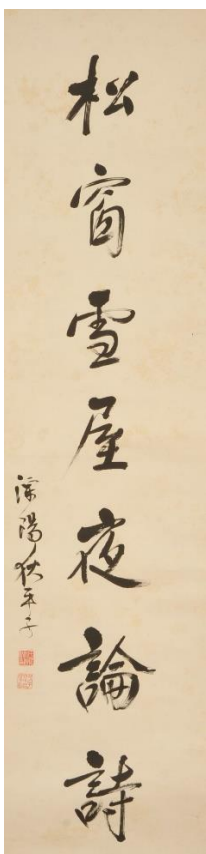 松窗雪屋夜論詩
溧陽狄平子